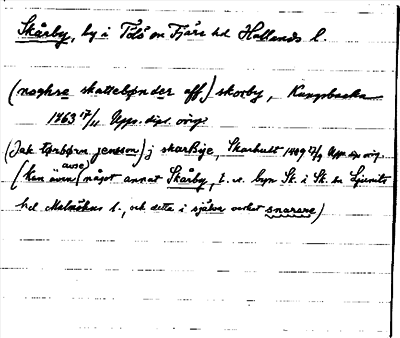 Skårby, by i Tölö sn Fjäre hd Hallands l.
(noghre skattebønder aff) skorby, Kungsbacka
1463 17/11 Upps. dipl. orig.
(Jak torbørn jensson) j skarby, Skarhult 1409 17/9 Upps. dipl. orig.
(kan även avse något annat Skårby, t. ex. byn Sk. i Sk. sn Ljunits
hd Malmöhus l., och detta i själva verket snarare)